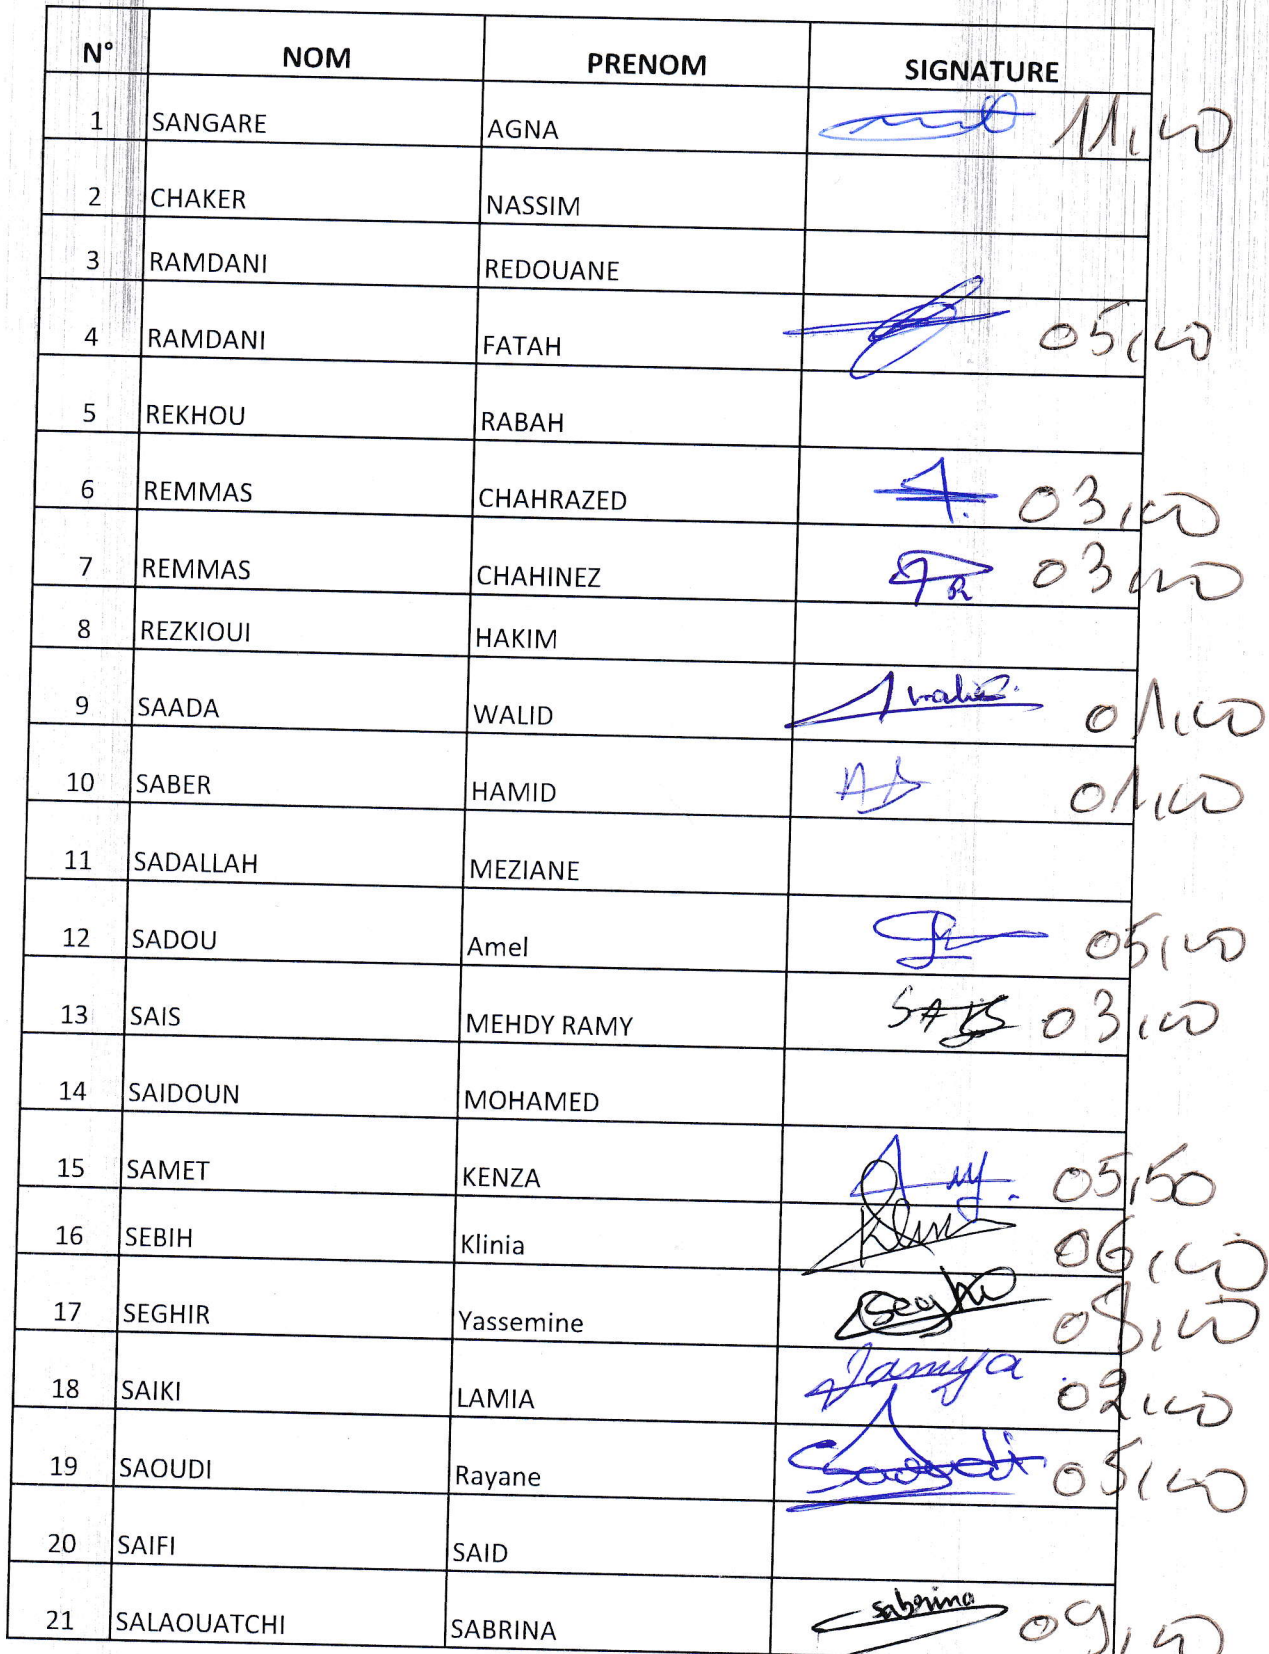 N° NOM PRENOM SIGNATURE
1 SANGARE AGNA 11,00
2 CHAKER NASSIM
3 RAMDANI REDOUANE
4 RAMDANI FATAH 05,00
5 REKHOU RABAH
6 REMMAS CHAHRAZED 03,00
7 REMMAS CHAHINEZ 03,00
8 REZKIOUI HAKIM
9 SAADA WALID walid 01,00
10 SABER HAMID 01,00
11 SADALLAH MEZIANE
12 SADOU Amel 05,00
13 SAIS MEHDY RAMY SAIS 03,00
14 SAIDOUN MOHAMED
15 SAMET KENZA 05,50
16 SEBIH Klinia 06,00
17 SEGHIR Yassemine Seghir
18 SAIKI LAMIA Lamya 02,00
19 SAOUDI Rayane Saoudi 05,00
20 SAIFI SAID
21 SALAOUATCHI SABRINA sabrina 09,00